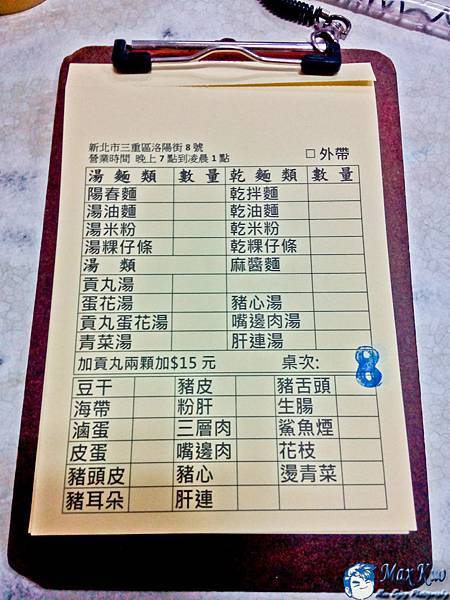 新北市三重區洛陽街 8 號
營業時間 晚上 7 點到凌晨 1 點 □ 外帶
湯麵類 數量 乾麵類 數量
陽春麵 乾拌麵
湯油麵 乾油麵
湯米粉 乾米粉
湯粿仔條 乾粿仔條
湯 類 麻醬麵
貢丸湯
蛋花湯 豬心湯
貢丸蛋花湯 嘴邊肉湯
青菜湯 肝連湯
加貢丸兩顆加$15 元 桌次: 8
豆干 豬皮 豬舌頭
海帶 粉肝 生腸
滷蛋 三層肉 鯊魚煙
皮蛋 嘴邊肉 花枝
豬頭皮 豬心 燙青菜
豬耳朵 肝連
Max Kuo